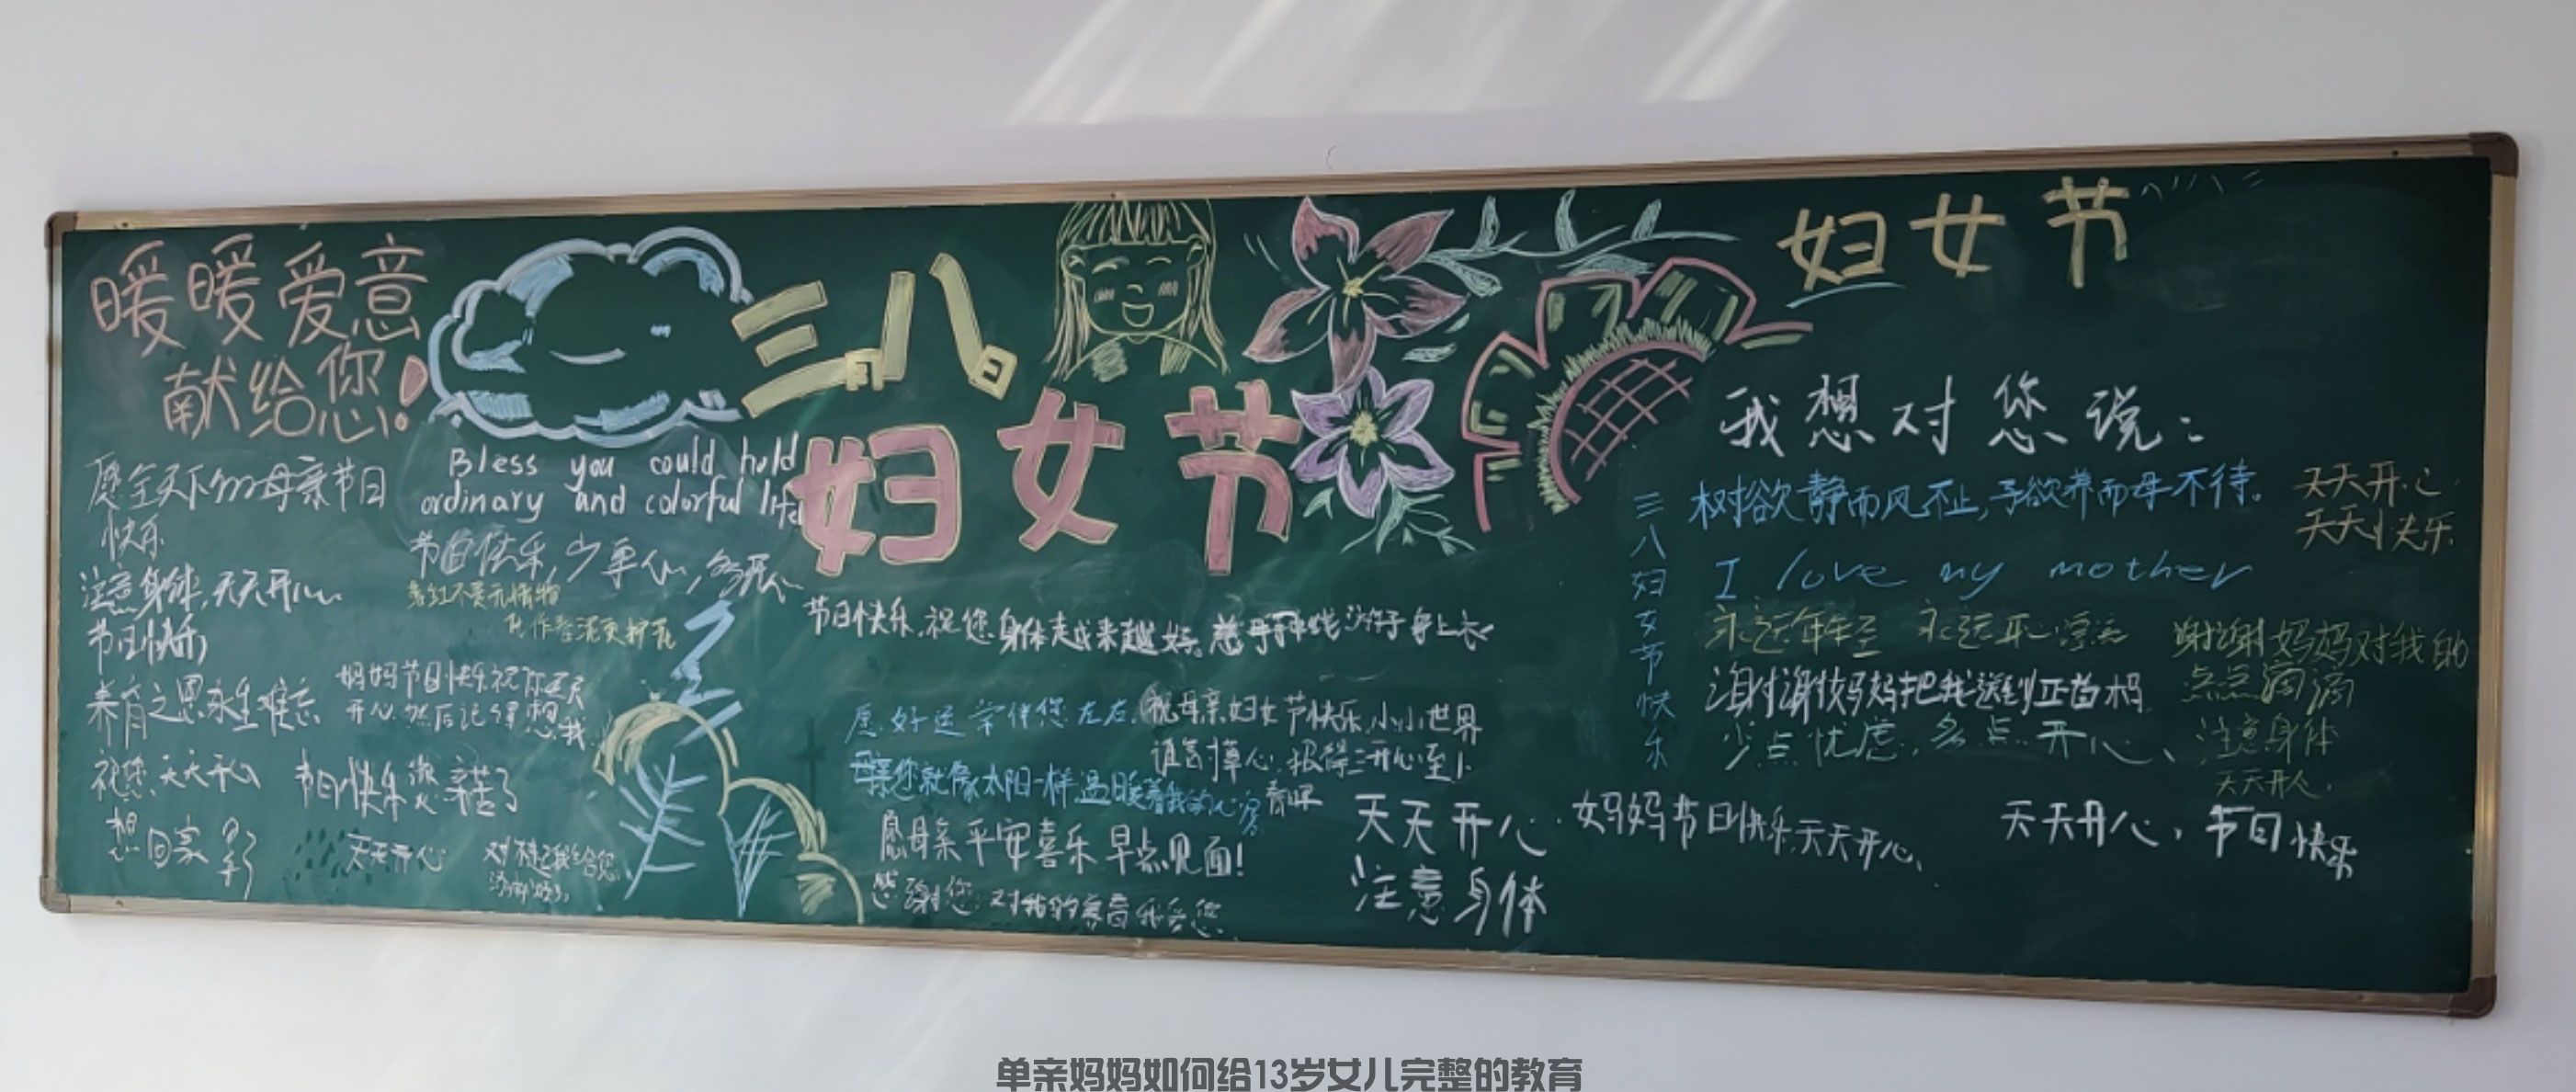 暖暖爱意
献给您!
愿全天下的母亲节日
快乐
注意身体,天天开心
节日快乐
养育之恩永生难忘
祝您天天开心
想回家
Bless you could hold
ordinary and colorful life
节日快乐,少事心,多开心
妈妈节日快乐祝你天天
开心.然后记得想我
节日快乐 辛苦了
天天开心
对不起我给您
三月八日
妇女节
节日快乐,祝您身体越来越好。慈母手中线 游子身上衣
愿好运常伴您左右
祝母亲妇女节快乐,小小世界
母亲您就像太阳一样温暖着我的心房
愿母亲平安喜乐 早点见面!
感谢您对我的养育 我爱您
妇女节
我想对您说:
三八妇女节快乐
树欲静而风不止,子欲养而母不待。
天天开心
天天快乐
I love my mother
永远年轻 永远开心
谢谢妈妈对我的
点点滴滴
谢谢妈妈把我送到正苗
少点忧虑,多点开心、
注意身体
天天开心.
天天开心.
注意身体
妈妈节日快乐.天天开心、
天天开心,节日快乐
单亲妈妈如何给13岁女儿完整的教育